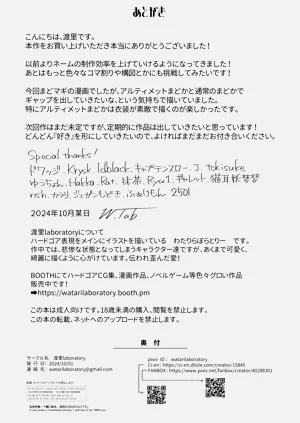 あとがき
こんにちは、渡里です。
本作をお買い上げいただき本当にありがとうございました！
以前よりネームの制作効率を上げていけるようになってきました！
あとはもっと色々なコマ割りや構図とかにも挑戦してみたいです！
今回まどマギの漫画でしたが、アルティメットまどかと通常のまどかで
ギャップを出していきたいな、という気持ちで描いていました。
特にアルティメットまどかは衣装が素敵で描くのが楽しかったです。
次回作はまだ未定ですが、定期的に作品は出していきたいと思っています！
どんどん「好き」を形にしていきたいので、よければまだまだお付き合いください。
Special thanks!
ドワッジ. Krysk. ldblack. キャプテンスロー. J. tokisuke
ゆうちょん. Hakka. Rat. 抹茶. Ryu1. ギャレット. 猫耳妖夢夢
nsh. カラリ. ジェガンもどき. ふぁりちん. 2501
2024年10月某日
W.Tab
渡里laboratoryについて
ハードゴア表現をメインにイラストを描いている わたりらぼらとりー です。
作中では、悲惨な状態となってしまうキャラクター達ですが、あくまで可愛く、
綺麗に描くように心がけています。伝われ歪んだ愛！
BOOTHにてハードゴアCG集、漫画作品、ノベルゲーム等色々グロい作品
販売中です！
➡https://watarilaboratory.booth.pm
この本は成人向けです。18歳未満の購入、閲覧を禁止します。
この本の転載、ネットへのアップロードを禁止します。
奥 付
サークル名 渡里laboratory
発 行 日： 2024/10/01
連 絡 先： watarilaboratory@gmail.com
pixiv ID： watarilaboratory
Ci-en：https://ci-en.dlsite.com/creator/15845
FANBOX：https://www.pixiv.net/fanbox/creator/40288301